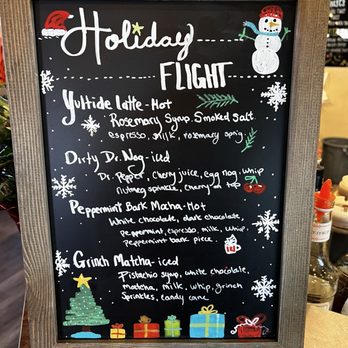 Holiday
FLIGHT
Yultide latte - Hot
Rosemary Syrup, Smoked Salt
espresso, milk, rosemary sprig
Dirty Dr. Nog - iced
Dr. Pepper, cherry juice, egg nog, whip
nutmeg sprinkle, cherry on top
Peppermint Bark Mocha - Hot
White chocolate, dark chocolate
peppermint, espresso, milk, whip
Peppermint bark piece
Grinch Matcha - iced
Pistachio syrup, white chocolate,
matcha, milk, whip, grinch
Sprinkles, candy cane